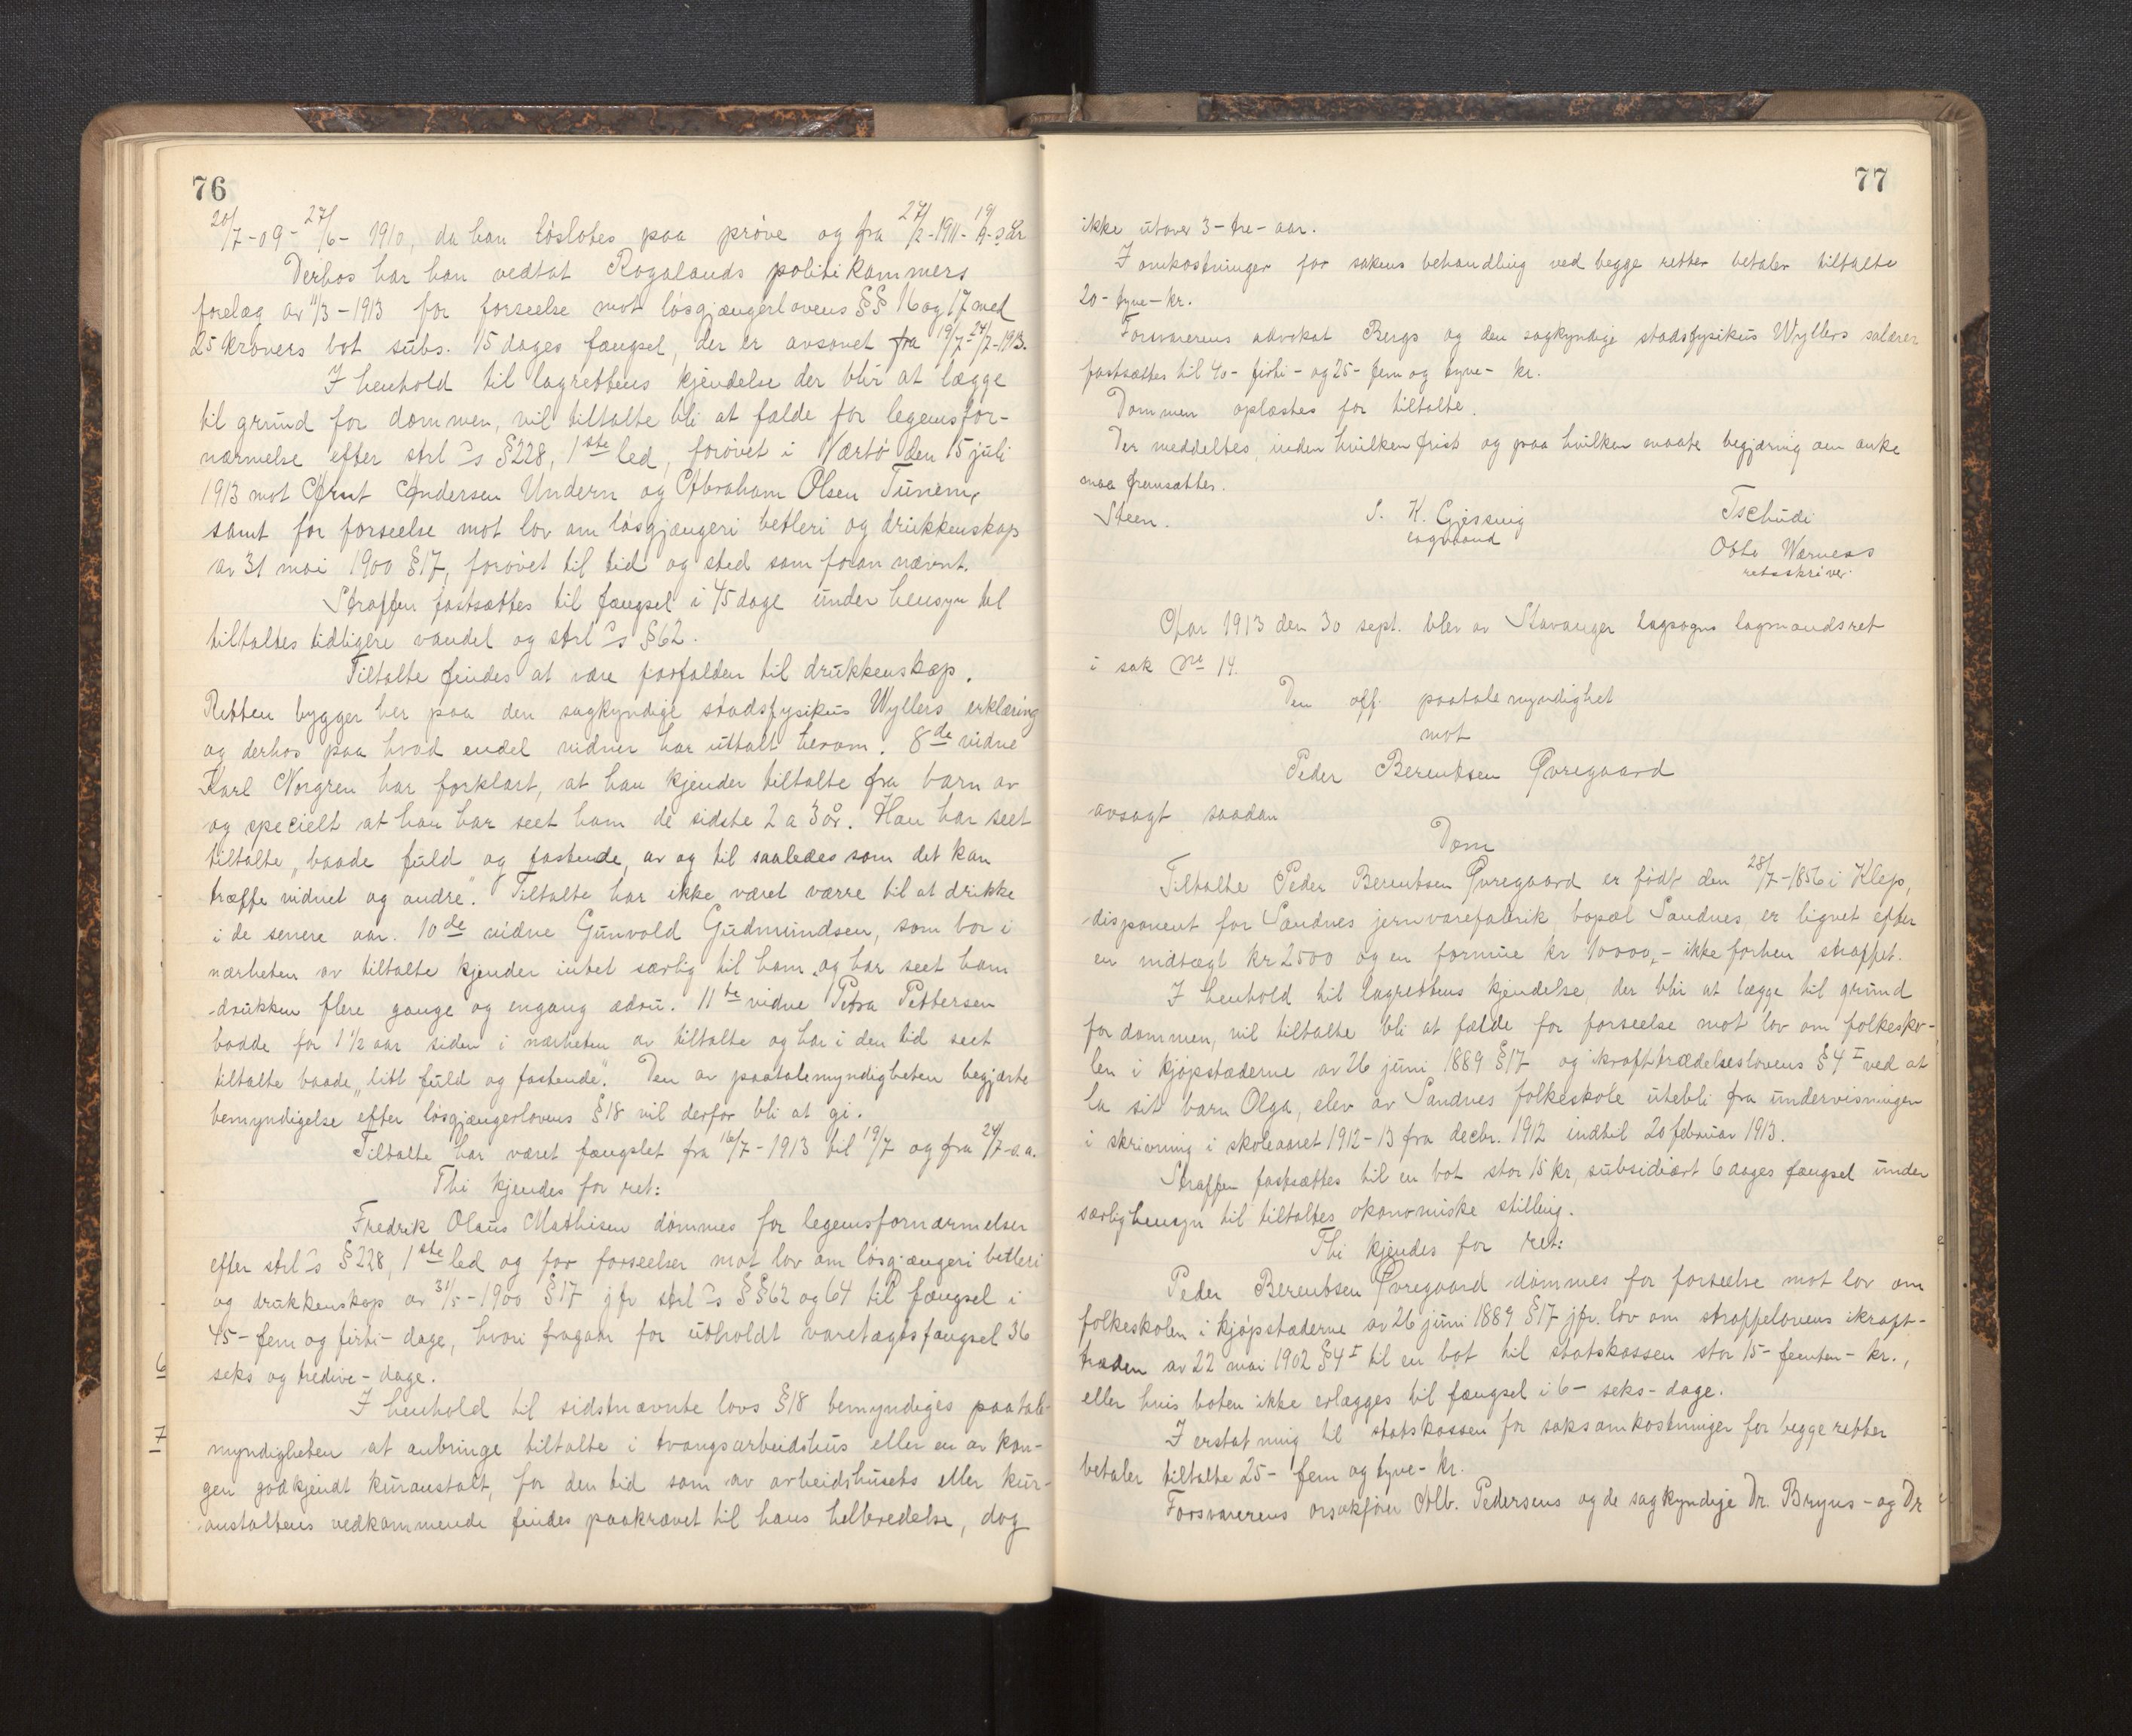 76
20/7-09- 27/6- 1910, da han løslotes paa prøve og fra 27/2-1911- 19/9- s år
Derhos har han vedtat Rogalands politikammers
forelæg av 11/3-1913 for forseelse mot løsgjængerlovens §§ 16 og 17 med
25 kroners bot subs. 15 dages fængsel, der er avsonet fra 19/7-24/7-1913.
I henhold til lagrettens kjendelse der blir at lægge
til grund for dommen, vil tiltalte bli at fælde for legemsfor-
nærmelse efter strl's §228, 1ste led, forøvet i Værtø den 15 juli
1913 mot Arnt Andersen Undern og Abraham Olsen Tunem,
samt for forseelse mot lov om løsgjængeri betleri og drukkenskap
av 31 mai 1900 §17, forøvet til tid og sted som foran nævnt.
Straffen fastsættes til fængsel i 45 dage under hensyn til
tiltaltes tidligere vandel og strl's §62.
Tiltalte findes at være forfalden til drukkenskap.
Retten bygger her paa den sagkyndige stadsfysikus Wyllers erklæring
og derhos paa hvad endel vidner har uttalt herom. 8de vidne
Karl Norgren har forklart, at han kjender tiltalte fra barn av
og specielt at han har seet ham de sidste 2 a 3 år. Han har seet
tiltalte „baade fuld og fastende, av og til saaledes som det kan
træffe vidnet og andre." Tiltalte har ikke været værre til at drikke
i de senere aar. 10de vidne Gunvald Gudmundsen, som bor i
nærheten av tiltalte kjender intet særlig til ham og har seet ham
drukken flere gange og engang ædru. 11te vidne Petra Pettersen
bodde for 1 1/2 aar siden i nærheten av tiltalte og har i den tid seet
tiltalte baade „litt fuld og fastende". Den av paatalemyndigheten begjærte
bemyndigelse efter løsgjængerlovens §18 vil derfor bli at gi.
Tiltalte har været fængslet fra 16/7-1913 til 19/7 og fra 24/7-s.a.
Thi kjendes for ret:
Fredrik Olaus Mathisen dømmes for legemsfornærmelser
efter strl's §228, 1ste led og for forseelser mot lov om løsgjængeri betleri
og drukkenskap av 31/5-1900 §17 jfr strl's §§62 og 64 til fængsel i
45- fem og firti- dage, hvori fragaar for utholdt varetægtsfængsel 36
seks og tredive- dage.
I henhold til sidstnævnte lovs §18 bemyndiges paatale-
myndigheten at anbringe tiltalte i tvangsarbeidshus eller en av kon-
gen godkjendt kuranstalt, for den tid som av arbeidshusets eller kur-
anstaltens vedkommende findes paakrævet til hans helbredelse, dog
77
ikke utover 3- tre- aar.
I omkostninger for sakens behandling ved begge retter betaler tiltalte
20- tyve- kr.
Forsvarerens advokat Bergs og den sagkyndige stadsfysikus Wyllers salærer
fastsættes til 40- firti- og 25- fem og tyve- kr.
Dommen oplæstes for tiltalte.
Der meddeltes, inden hvilken frist og paa hvilken maate begjæring om anke
maa fremsættes.
Steen. S. K. Gjessing Tschudi
lagmand Otto Wærness
retsskriver.
Aar 1913 den 30 sept. blev av Stavanger lagsogns lagmandsret
i sak No 14.
Den off. paatalemyndighet
mot
Peder Berentsen Øvregaard
avsagt saadan
Dom
Tiltalte Peder Berentsen Øvregaard er født den 28/7-1856 i Klep,
disponent for Sandnes jernvarefabrik, bopæl Sandnes, er lignet efter
en indtægt kr 2500 og en formue kr 10000,- ikke forhen straffet.
I henhold til lagrettens kjendelse, der blir at lægge til grund
for dommen, vil tiltalte bli at fælde for forseelse mot lov om folkesko-
len i kjøpstæderne av 26 juni 1889 §17 og ikrafttrædelseslovens §4 I ved at
la sit barn Olga, elev av Sandnes folkeskole utebli fra undervisningen
i skrivning i skoleaaret 1912-13 fra decbr. 1912 indtil 20 februar 1913.
Straffen fastsættes til en bot stor 15 kr, subsidiært 6 dages fængsel under
særlig hensyn til tiltaltes økonomiske stilling.
Thi kjendes for ret:
Peder Berentsen Øvregaard dømmes for forseelse mot lov om
folkeskolen i kjøpstæderne av 26 juni 1889 §17 jfr. lov om straffelovens ikraft-
træden av 22 mai 1902 §4 I til en bot til statskassen stor 15- femten- kr.,
eller hvis boten ikke erlægges til fængsel i 6- seks- dage.
I erstatning til statskassen for saksomkostninger for begge retter
betaler tiltalte 25- fem og tyve- kr.
Forsvarerens orsakfører Alb. Pedersens og de sagkyndige Dr. Bryns- og Dr
6
7